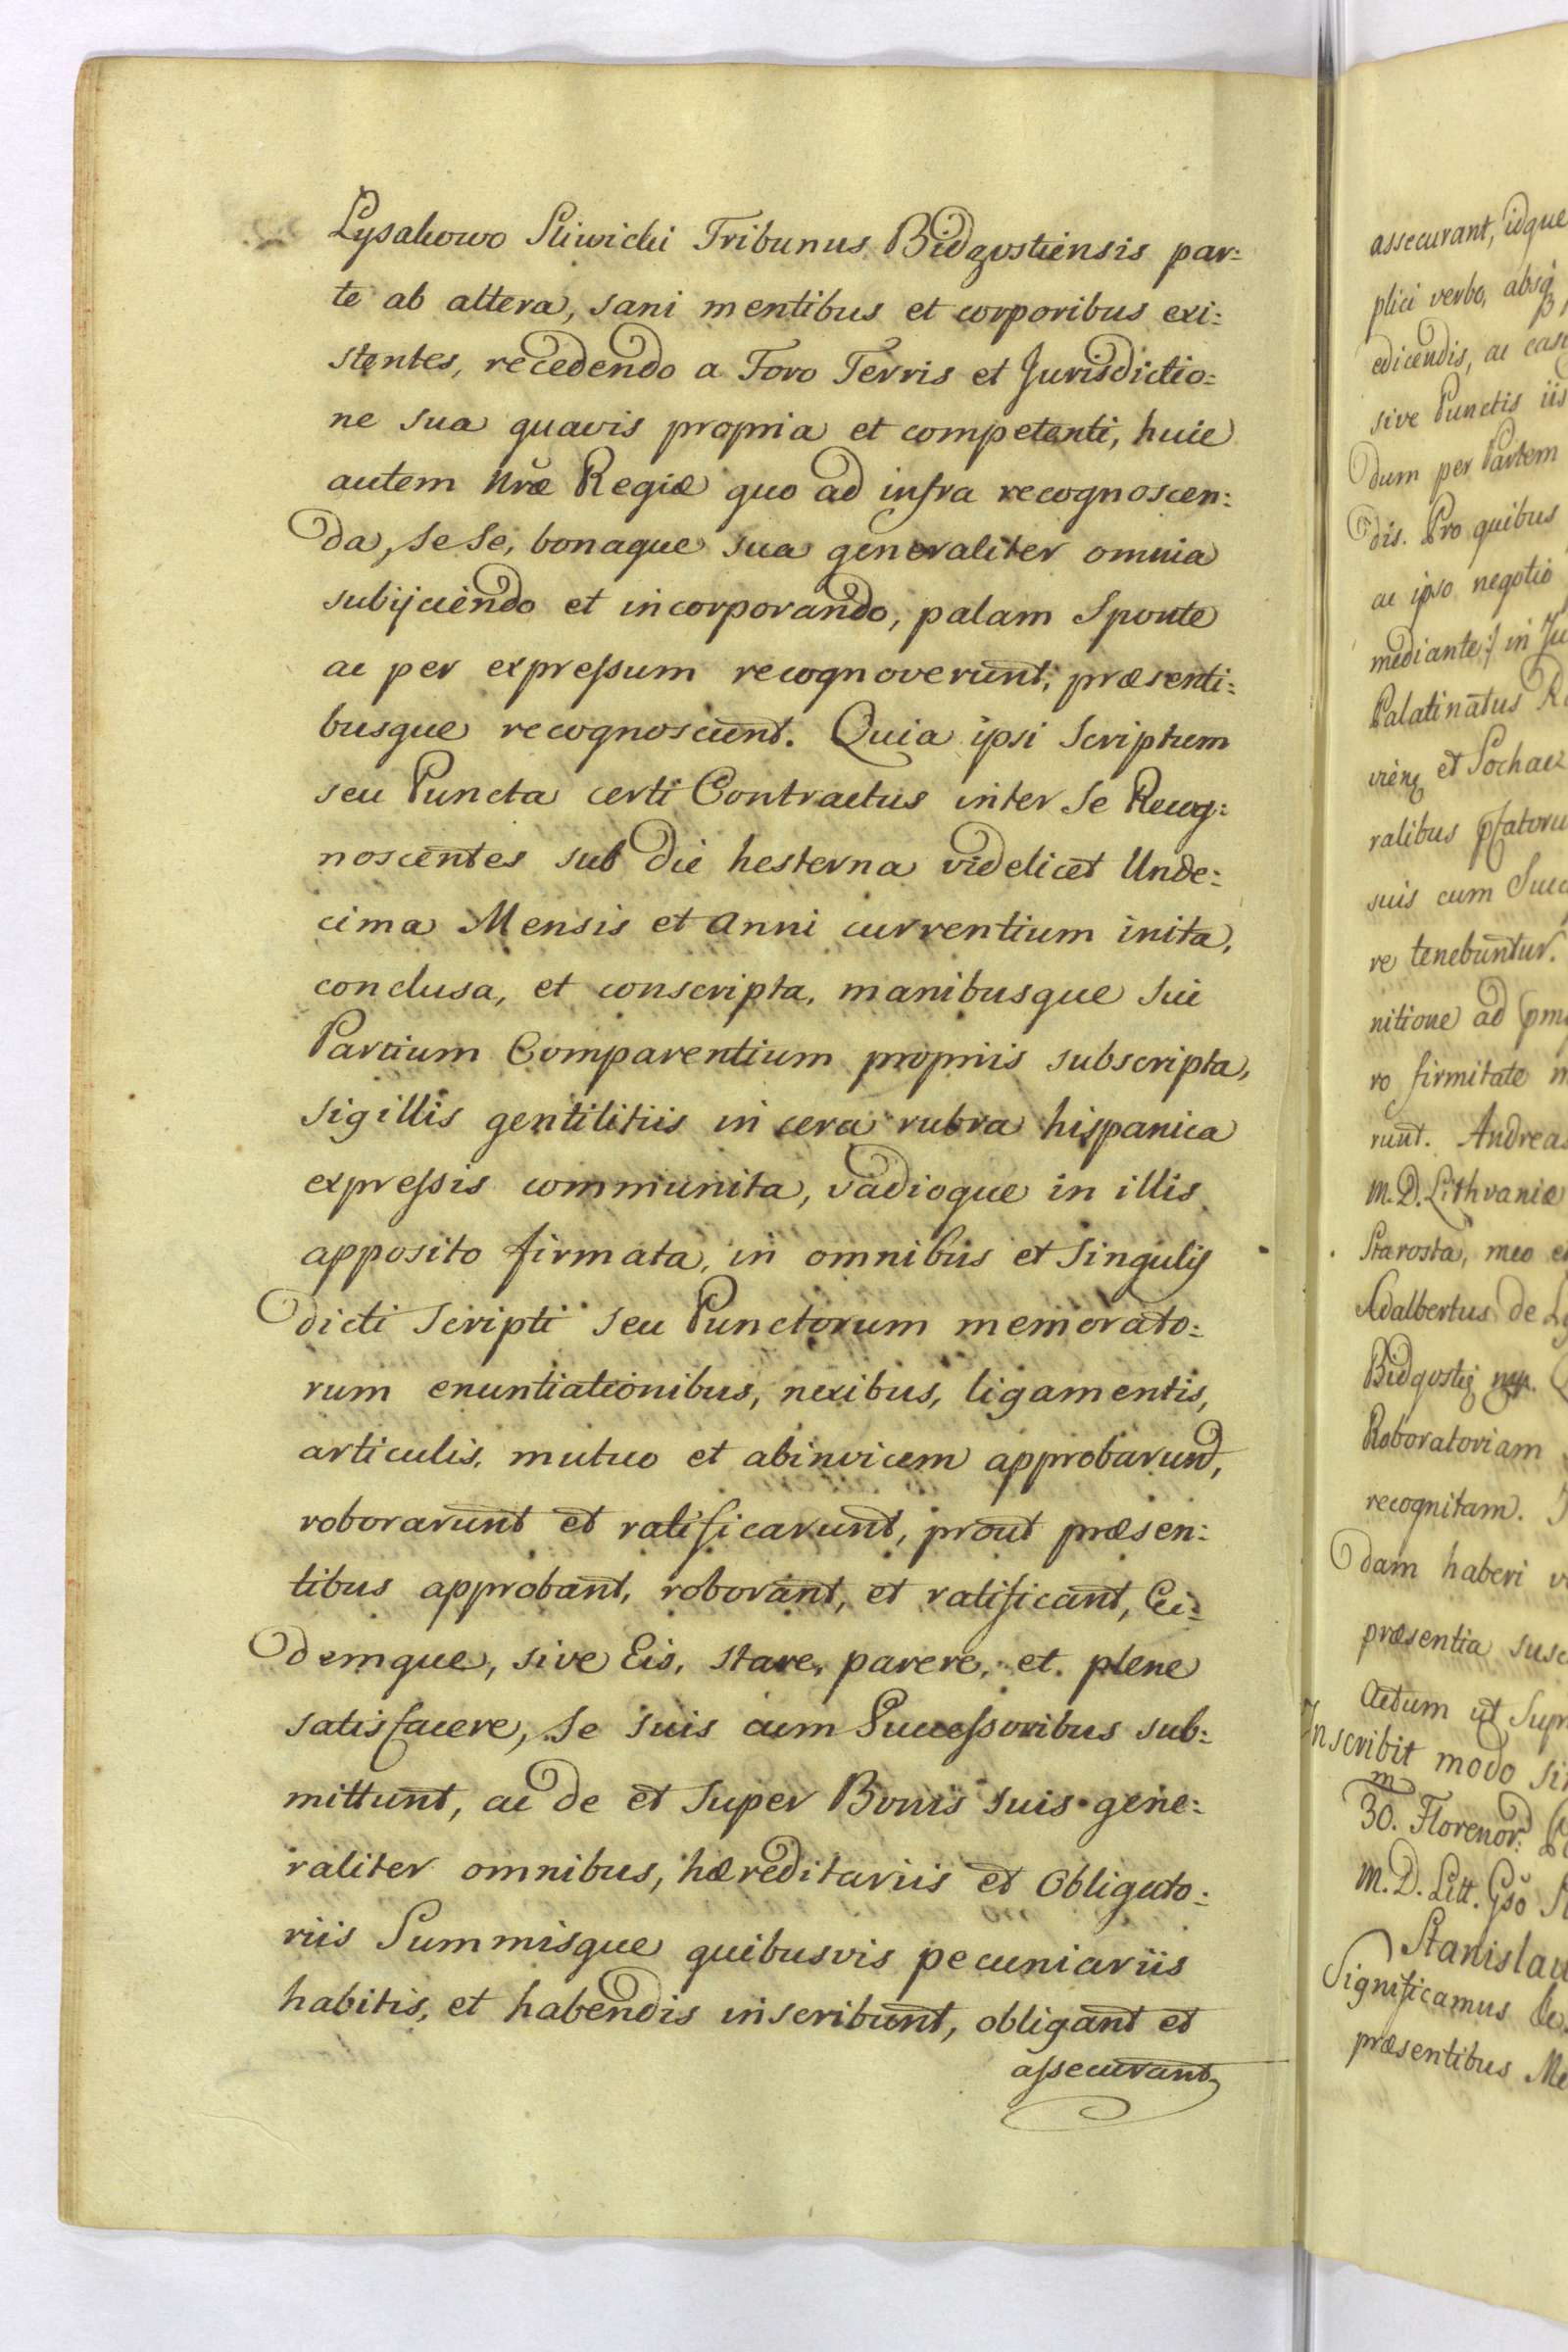 Lysakowo Sliwicki Tribunus Bidgostiensis par:
te ab altera, sani mentibus et corporibus exi:
stentes, recedendo a Foro Terris et Jurisdictio:
ne sua quavis propria et competenti, huic
autem Nræ Regiæ quo ad infra recognoscen:
da, se se, bonaque sua generaliter omnia
subijciendo et incorporando, palam sponte
ac per expressum recognoverunt, præsenti:
busque recognoscunt. Quia ipsi Scriptum
seu Puncta certi Contractus inter se Recog:
noscentes sub die hesterna videlicet Unde:
cima Mensis et Anni currentium inita,
conclusa, et conscripta, manibusque sui
Partium Comparentium propriis subscripta,
sigillis gentilitiis in cera rubra hispanica
expressis communita, vadioque in illis
apposito firmata, in omnibus et singulis
dicti Scripti seu Punctorum memorato:
rum enuntiationibus, nexibus, ligamentis,
articulis, mutuo et abinvicem approbarunt,
roborarunt et ratificarunt, prout præsen:
tibus approbant, roborant, et ratificant, Ei:
demque, sive Eis, stare, parere, et plene
satisfacere, se suis cum Successoribus sub:
mittunt, ac de et super Bonis suis gene:
raliter omnibus, hæreditariis et Obligato:
riis Summisque quibusvis pecuniariis
habitis, et habendis inscribunt, obligant et
assecurant
assecurant, idque
plici verbo, absq
edicendis, ac
sive Punctis iis
dum per Partem
dis. Pro quibus
ac ipso negotio
mediante:/ in
Palatinatus
et Sochac
ralibus pfatoru
suis cum Succ
re tenebuntur.
nitione ad
ro firmitate
runt. Andreas
M. D. Lithvaniæ
Starosta, meo
Adalbertus de
Bidgostien mp.
Roboratoriam
recognitam.
dam haberi
præsentia
Actum ut Supr
Inscribit modo
30. m Florenor:
M. D. Litt. Gso
Stanislau
Significamus
præsentibus